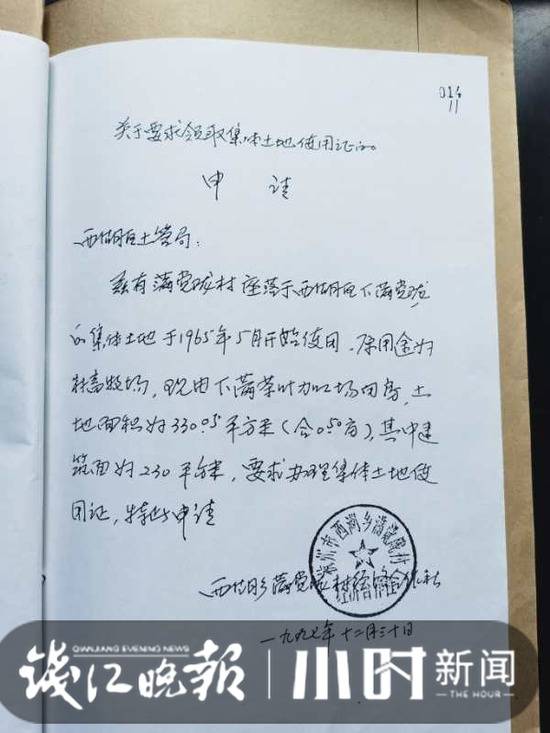 014
11
关于要求领取集体土地使用证的
申 请
西湖区土管局：
兹有满觉陇村座落于西湖区下满觉陇
的集体土地于1965年5月开始使用．原用途为
村畜牧场，现由下满茶叶加工场用房，土
地面积为330.05平方米（合0.50亩），其中建
筑面为230平方米，要求办理集体土地使
用证，特此申请
西湖乡满觉陇村经济合作社
一九九七年十二月三十日
QIANJIANG EVENING NEWS
钱江晚报
小时新闻
THE HOUR